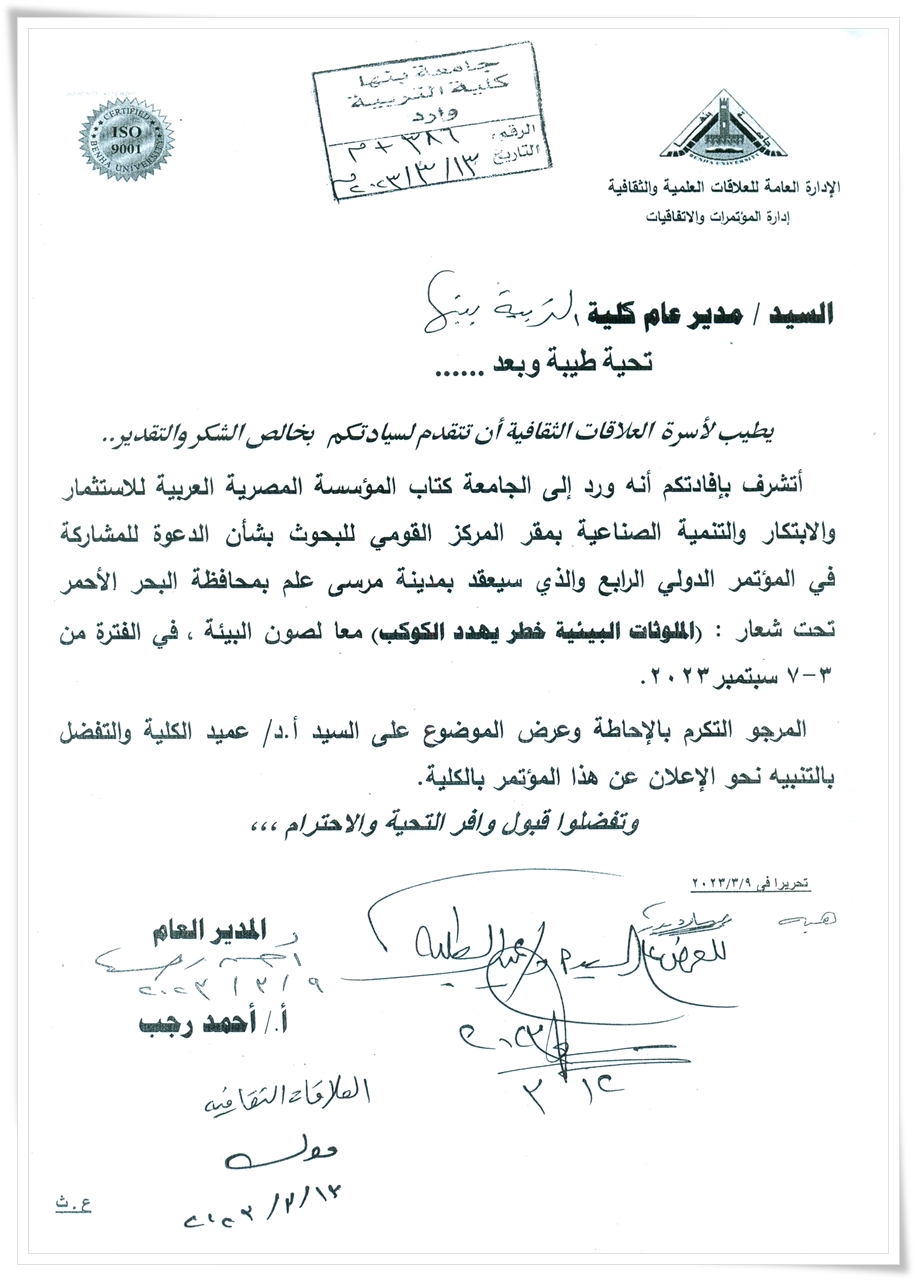 جامعة بنها
كلية التربية
وارد
الرقم: ٣٨٦ + م
التاريخ ٢٠٢٣/٣/١٣م
CERTIFIED
ISO
9001
BENHA UNIVERSITY
BENHA UNIVERSITY
الإدارة العامة للعلاقات العلمية والثقافية
إدارة المؤتمرات والاتفاقيات
السيد / مدير عام كلية التربية ببنها
تحية طيبة وبعد ......
يطيب لأسرة العلاقات الثقافية أن تتقدم لسيادتكم بخالص الشكر والتقدير..
أتشرف بإفادتكم أنه ورد إلى الجامعة كتاب المؤسسة المصرية العربية للاستثمار
والابتكار والتنمية الصناعية بمقر المركز القومي للبحوث بشأن الدعوة للمشاركة
في المؤتمر الدولي الرابع والذي سيعقد بمدينة مرسى علم بمحافظة البحر الأحمر
تحت شعار : (الملوثات البيئية خطر يهدد الكوكب) معا لصون البيئة ، في الفترة من
٣-٧ سبتمبر٢٠٢٣.
المرجو التكرم بالإحاطة وعرض الموضوع على السيد أ.د/ عميد الكلية والتفضل
بالتنبيه نحو الإعلان عن هذا المؤتمر بالكلية.
وتفضلوا قبول وافر التحية والاحترام ،،،
تحريرا في ٢٠٢٣/٣/٩
هبه
المدير العام
٢٠٢٣/٣/٩
أ./ أحمد رجب
للعرض على السيد
٢٠٢٣
٣ ١٢
العلاقات الثقافيه
٢٠٢٣/٣/١٣
ع.ث